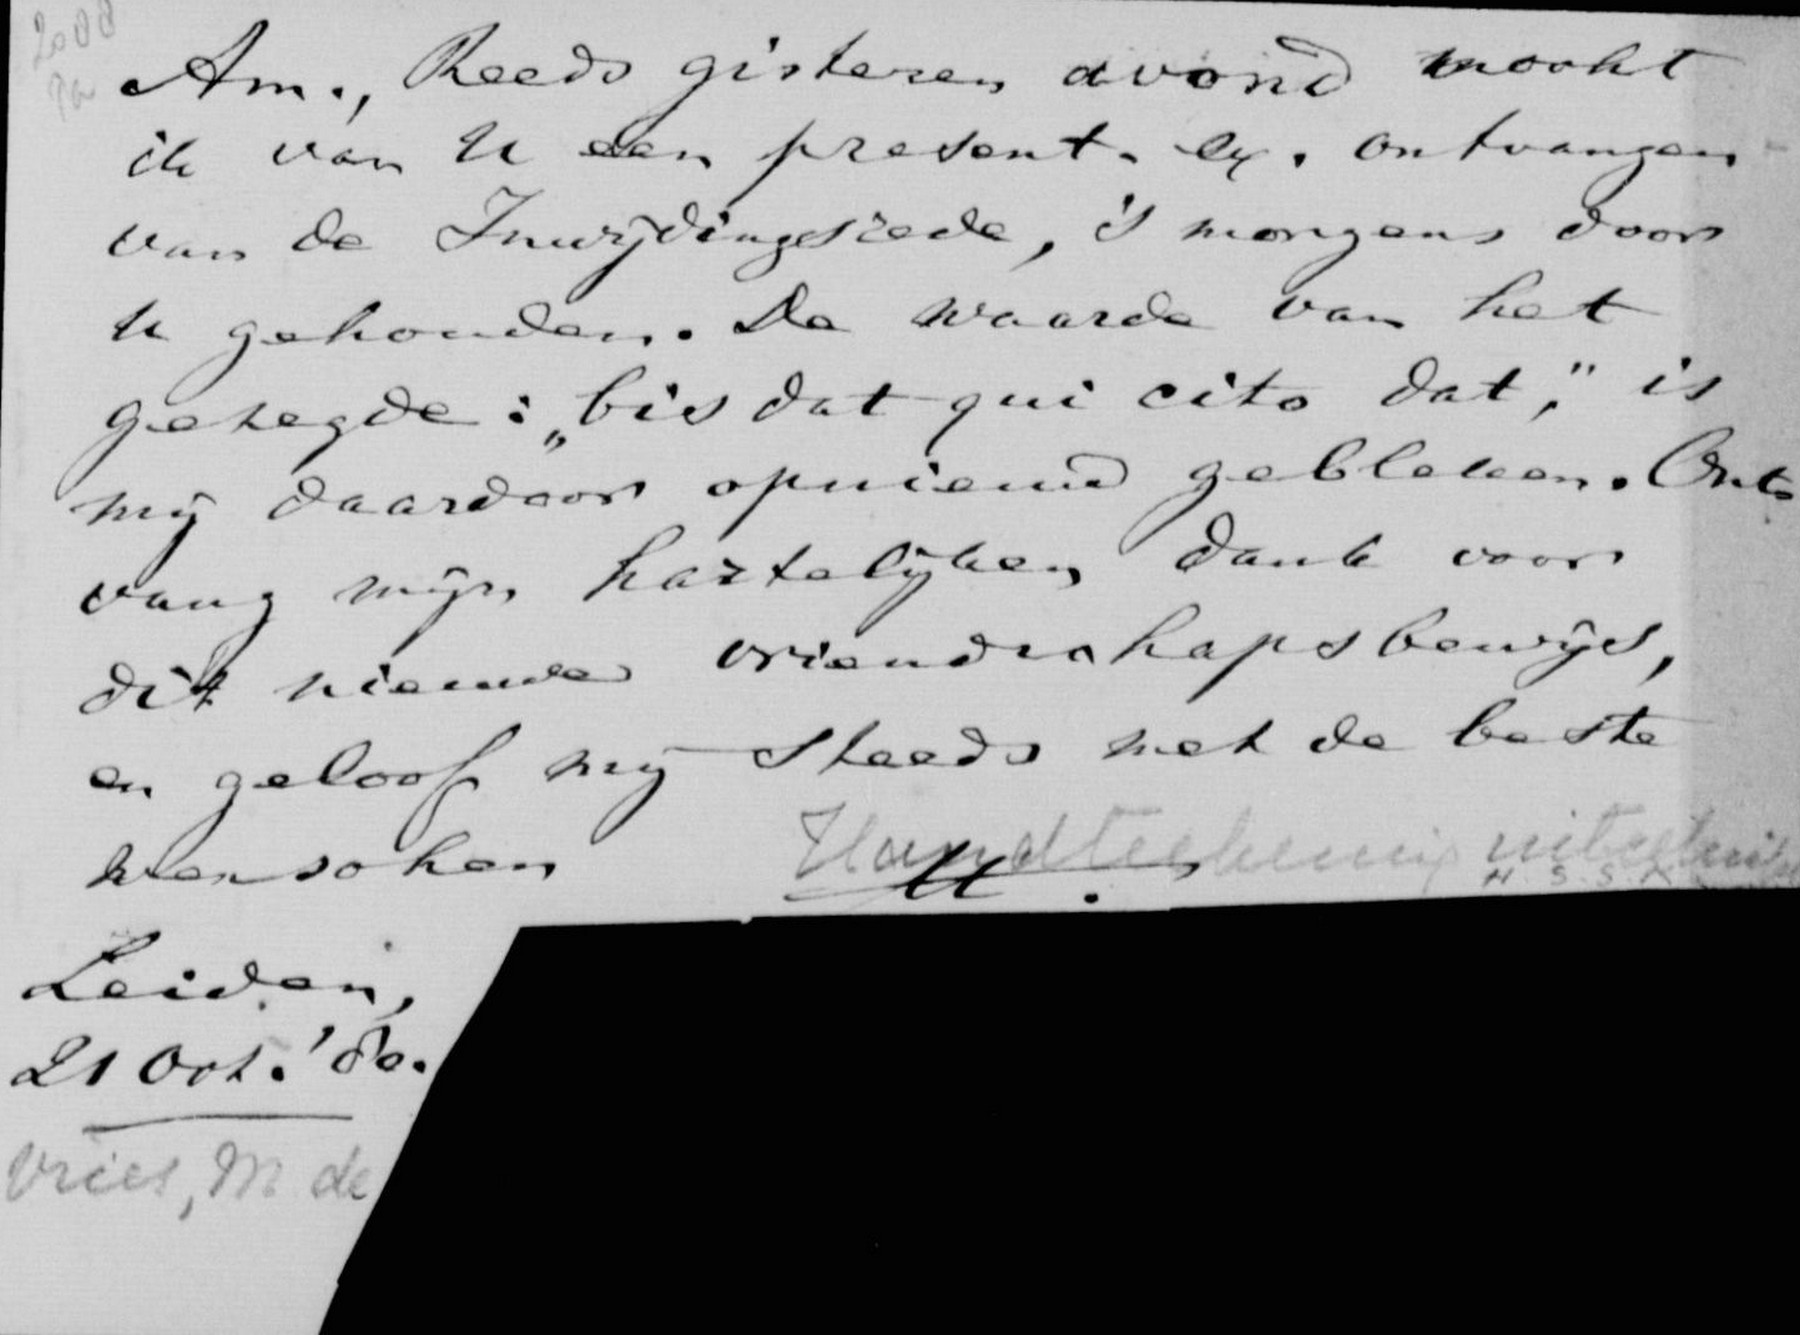 Am., Reeds gisteren avond mocht
ik van U een present. ex. ontvangen
van de Inwijdingsrede, 's morgens door
U gehouden. De waarde van het
gezegde: „bis dat qui cito dat," is
mij daardoor opnieuw gebleken. Ont-
vang mijn hartelijken dank voor
dit nieuwe vriendschapsbewijs,
en geloof mij steeds met de beste
wenschen
Handteekening
Leiden,
21 Oct. '80.
Vries, M de